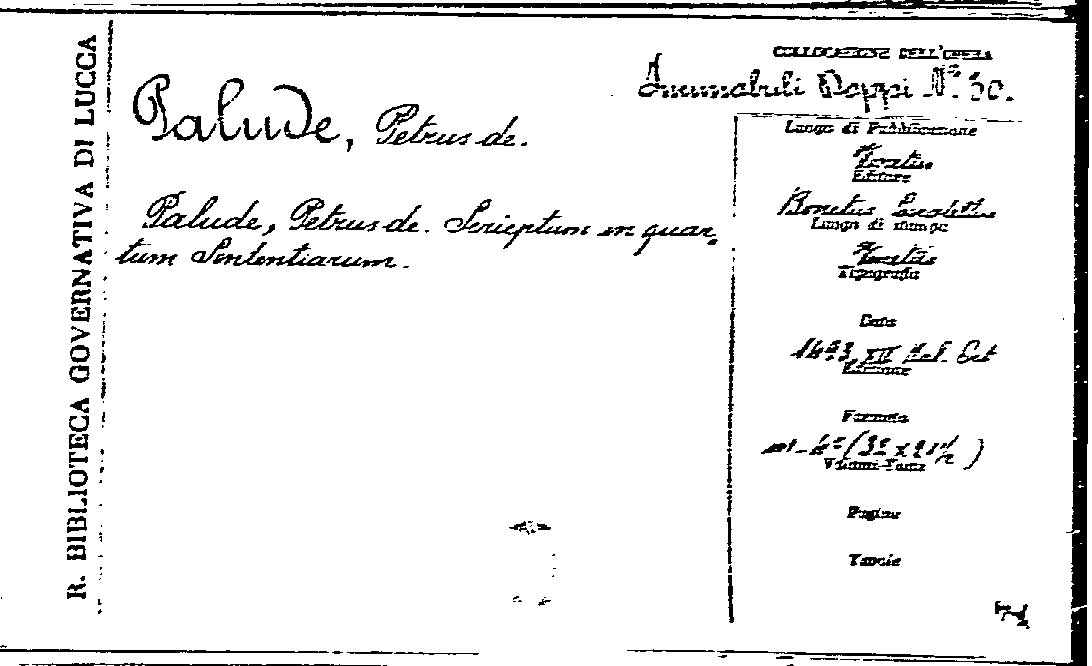 R. BIBLIOTECA GOVERNATIVA DI LUCCA
Palude, Petrus de.
Palude, Petrus de. Scriptum in quar-
tum Sententiarum.
COLLOCAZIONE DELL'OPERA
Incunabuli Doppi N.° 30.
Luogo di Pubblicazione
Editore
Bonetus
Luogo di stampa
Tipografia
Data
1493 XII Kal. Oct
Edizione
Formato
Volumi-Tomi
Pagine
Tavole